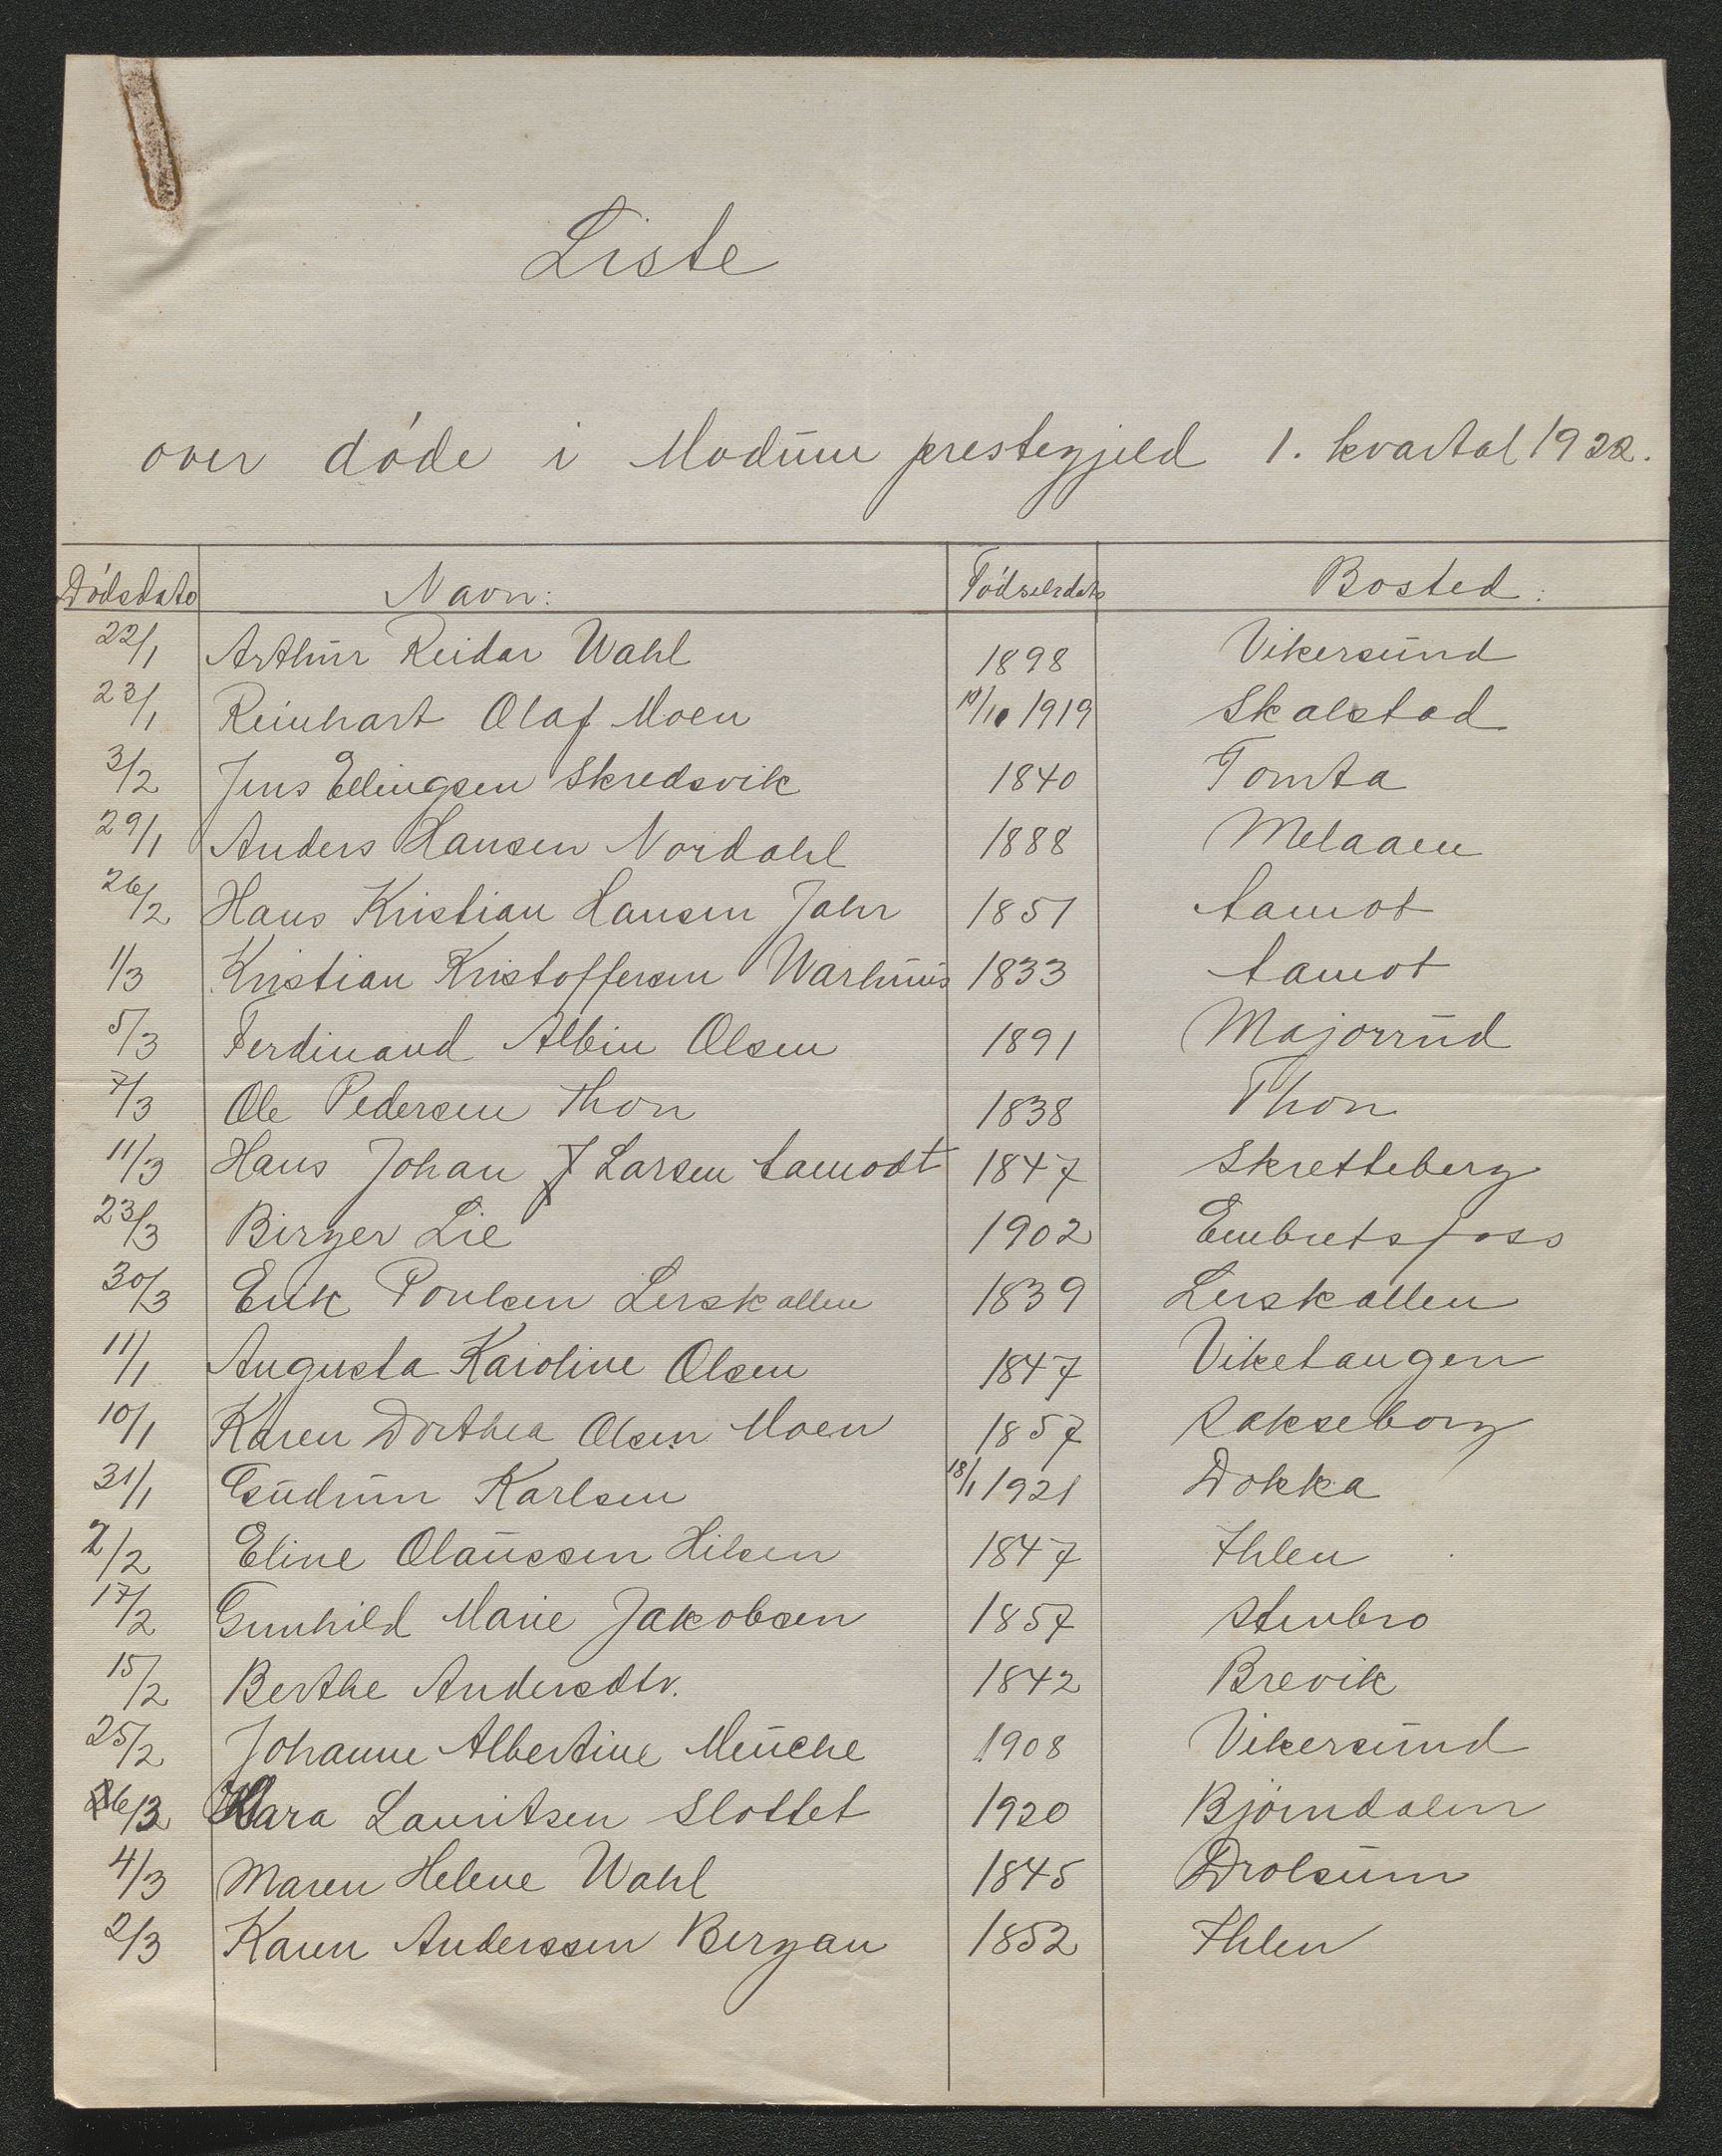 Liste
over døde i Modum prestegjeld 1. kvartal 1922.
Dødsdato Navn: Fødselsdato Bosted:
22/1 Arthur Reidar Wahl 1898 Vikersund
23/1 Reinhart Olaf Moen 10/10 1919 Skalstad
3/2 Jens Ellingsen Skredsvik 1840 Tomta
29/1 Anders Hansen Nordahl 1888 Melaaen
26/2 Hans Kristian Hansen Jahr 1851 Aamot
1/3 Kristian Kristoffersen Warhuus 1833 Aamot
5/3 Ferdinand Albin Olsen 1891 Majorrud
7/3 Ole Pedersen Thon 1838 Thon
11/3 Hans Johan Larsen Aamodt 1847 Skretteberg
23/3 Birger Lie 1902 Embretsfoss
30/3 Erik Poulsen Lerskallen 1839 Lerskallen
11/1 Augusta Karoline Olsen 1847 Viketangen
10/1 Karen Dorthea Olsen Moen 1857 Sakseborg
31/1 Gudrun Karlsen 18/1 1921 Dokka
2/2 Eline Olaussen Hilsen 1847 Ihlen
17/2 Gunhild Marie Jakobsen 1857 Stenbro
15/2 Berthe Andersdtr. 1842 Brevik
25/2 Johanne Albertine Meüche 1908 Vikersund
26/3 Klara Lauritsen Slottet 1920 Bjørndalen
4/3 Maren Helene Wahl 1845 Drolsum
2/3 Karen Anderssen Bergan 1852 Ihlen